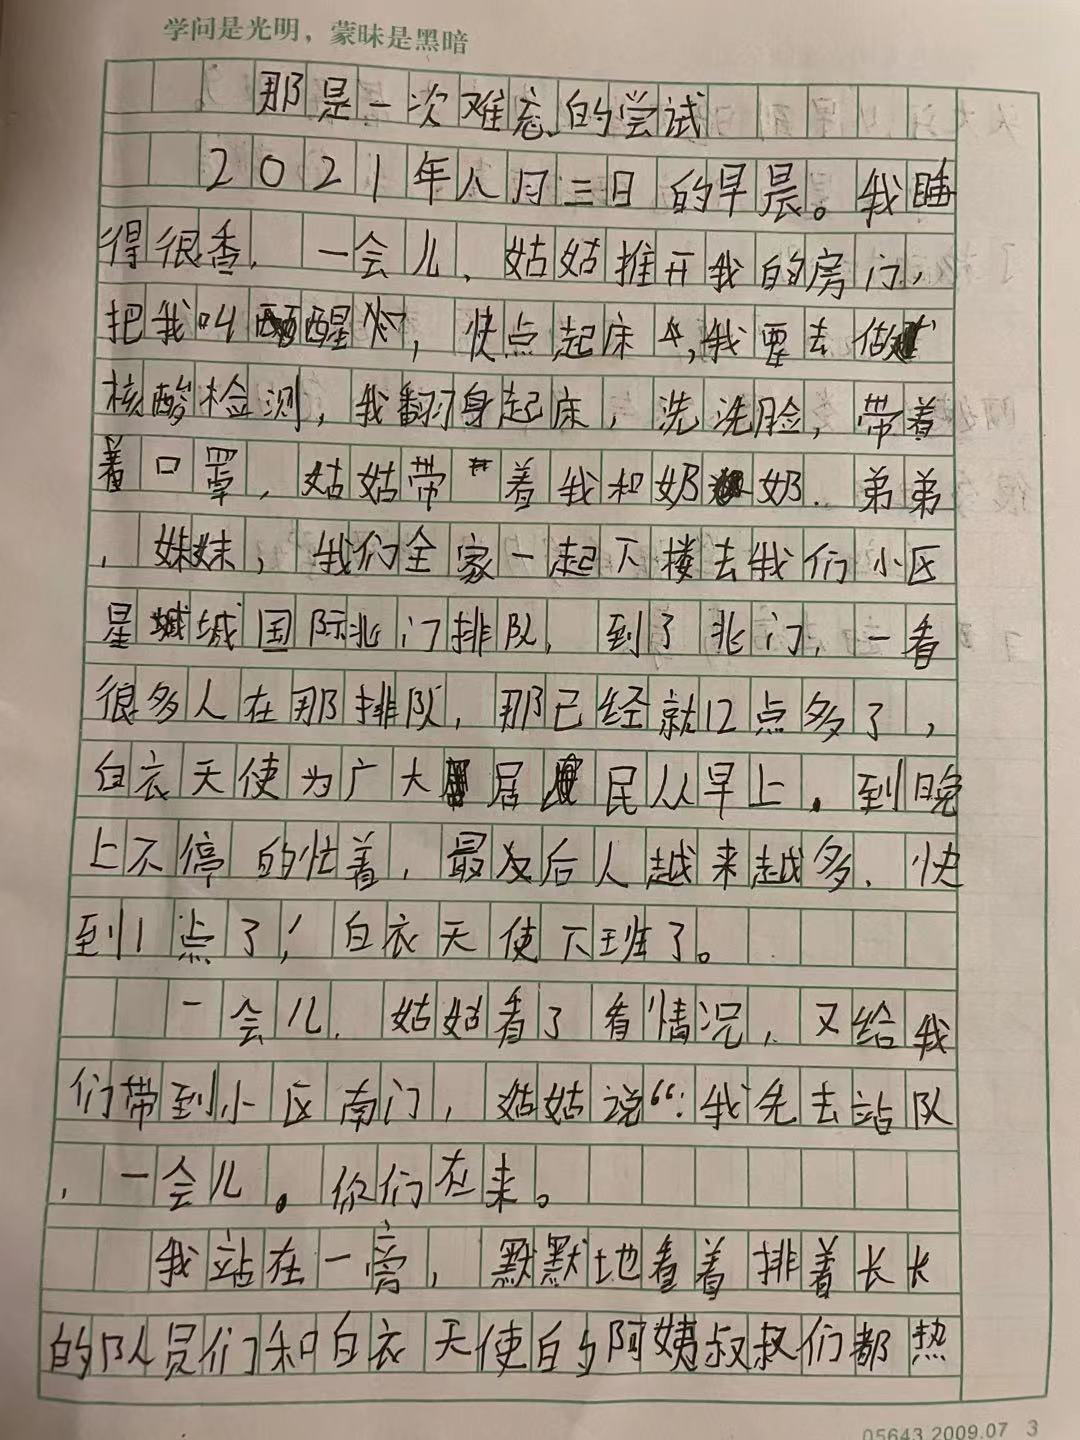 学问是光明，蒙昧是黑暗
那是一次难忘的尝试
2021年八月三日的早晨。我睡
得很香，一会儿，姑姑推开我的房门，
把我叫醒，快点起床，我要去做
核酸检测，我翻身起床，洗洗脸，带着
着口罩，姑姑带着我和奶奶、弟弟
、妹妹，我们全家一起下楼去我们小区
星城国际北门排队，到了北门，一看
很多人在那排队，那已经就12点多了，
白衣天使为广大居民从早上。到晚
上不停的忙着，最后人越来越多、快
到1点了，白衣天使下班了。
一会儿，姑姑看了看情况，又给我
们带到小区南门，姑姑说“：我先去站队
，一会儿。你们在来。
我站在一旁，默默地看着排着长长
的队员们和白衣天使的阿姨叔叔们都热
05643.2009.07 3